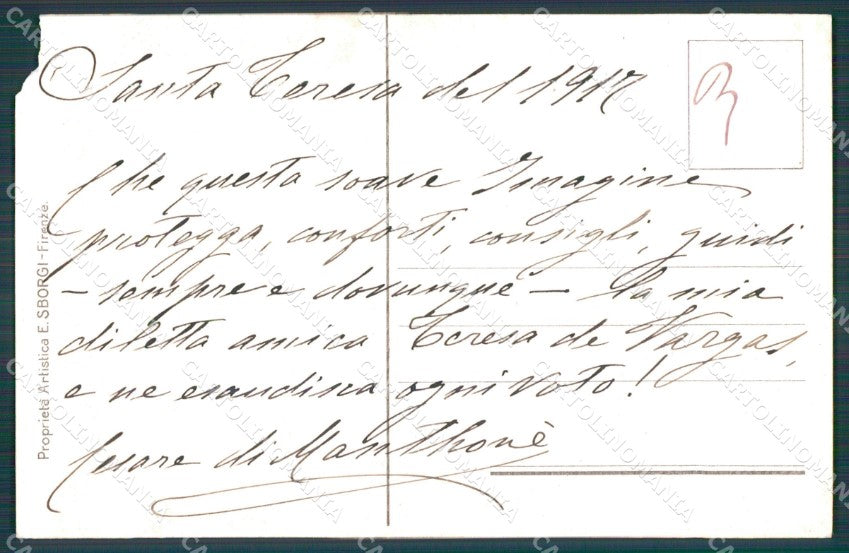 Santa Teresa del 1917
Che questa soave Imagine
protegga, conforti, consigli, guidi
- sempre e dovunque - la mia
diletta amica Teresa de Vargas,
e ne esaudisca ogni voto!
Cesare di Manthonè
Proprietà Artistica E. SBORGI - Firenze.
CARTOLINOMANIA